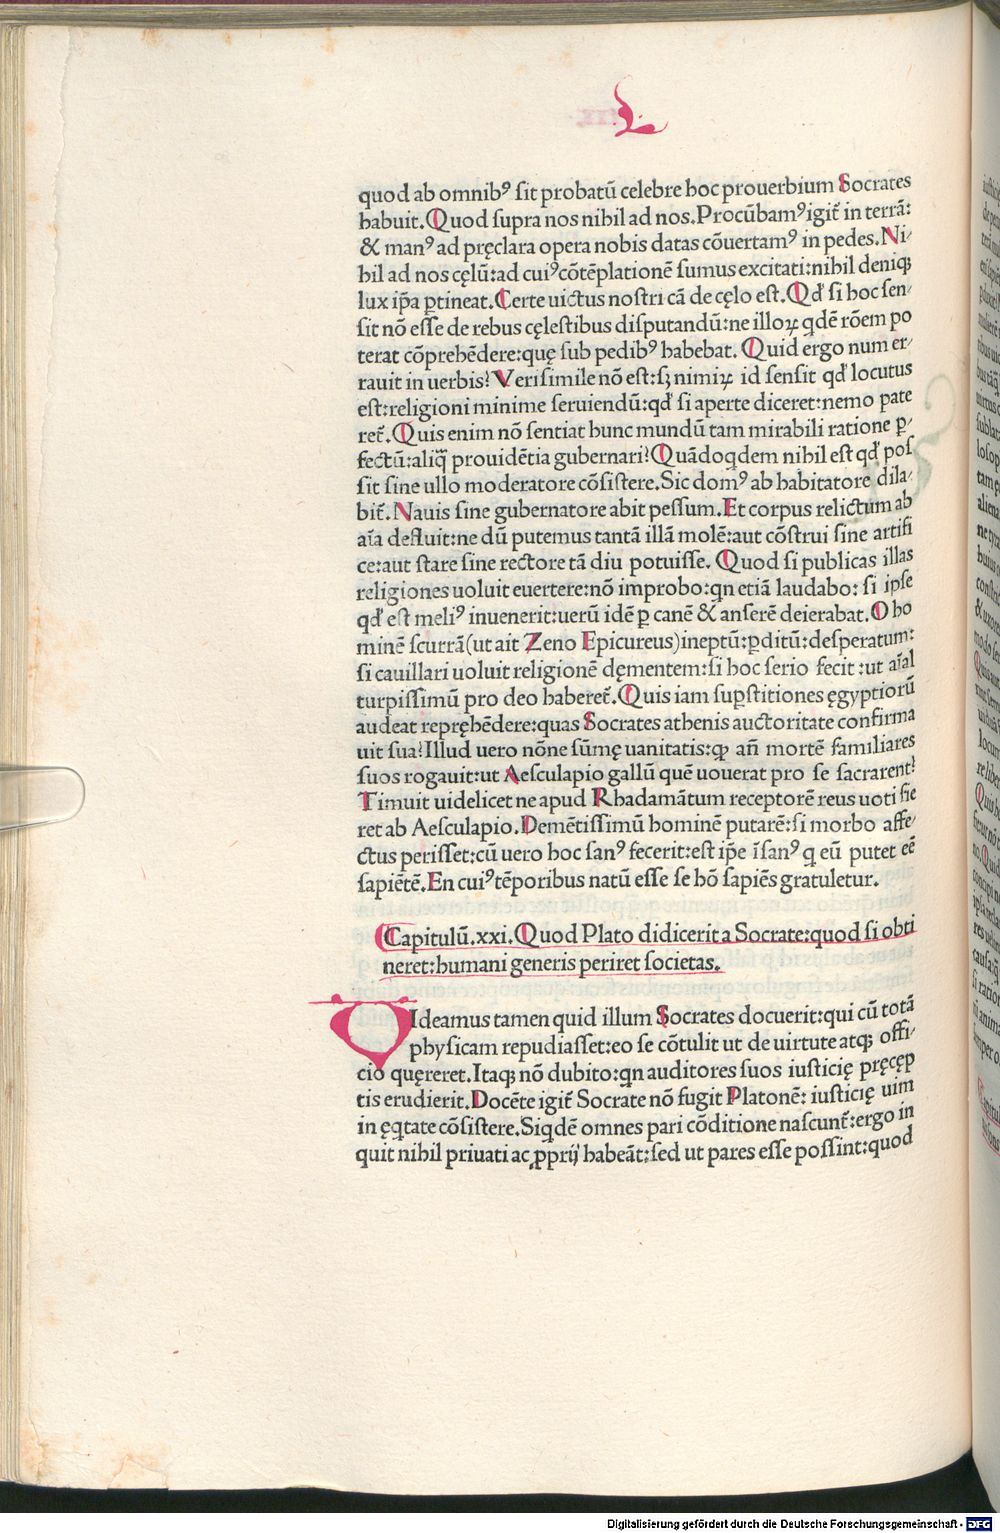 L
quod ab omnibꝰ ſit probatū celebre hoc prouerbium Socrates
habuit. Quod ſupra nos nihil ad nos. Procūbamꝰ igit̃ in terrā:
& manꝰ ad pręclara opera nobis datas cōuertamꝰ in pedes. Ni-
hil ad nos cęlū: ad cuiꝰ cōtēplationē ſumus excitati: nihil deniqꝫ
lux ip̄a ꝑtineat. Certe uictus noſtri cā de cęlo eſt. Qd̕ ſi hoc ſen-
ſit nō eſſe de rebus cęleſtibus diſputandū: ne illoꝝ qdē rōem po
terat cōprehēdere: quę ſub pedibꝰ habebat. Quid ergo num er-
rauit in uerbis? Veriſimile nō eſt: ſꝫ nimiꝝ id ſenſit qd̕ locutus
eſt: religioni minime ſeruiendū: qd̕ ſi aperte diceret: nemo pate
ret̃. Quis enim nō ſentiat hunc mundū tam mirabili ratione ꝑ-
fectū: aliq̄ prouidētia gubernari? Quādoqdem nihil eſt qd̕ poſ
ſit ſine ullo moderatore cōſiſtere. Sic domꝰ ab habitatore dila-
bit̃. Nauis ſine gubernatore abit peſſum. Et corpus relictum ab
aīa defluit: ne dū putemus tantā illā molē: aut cōſtrui ſine artifi
ce: aut ſtare ſine rectore tā diu potuiſſe. Quod ſi publicas illas
religiones uoluit euertere: nō improbo: qn etiā laudabo: ſi ipſe
qd̕ eſt meliꝰ inuenerit: uerū idē ꝑ canē & anſerē deierabat. O ho
minē ſcurrā (ut ait Zeno Epicureus) ineptū: ꝑditū: deſperatum:
ſi cauillari uoluit religionē dęmentem: ſi hoc ſerio fecit: ut aīal
turpiſſimū pro deo haberet̃. Quis iam ſuꝑſtitiones ęgyptiorū
audeat repręhēdere: quas Socrates athenis auctoritate confirma
uit ſua? Illud uero nōne ſūmę uanitatis: ꝙ añ mortē familiares
ſuos rogauit: ut Aeſculapio gallū quē uouerat pro ſe ſacrarent?
Timuit uidelicet ne apud Rhadamātum receptorē reus uoti fie
ret ab Aeſculapio. Demētiſſimū hominē putarē: ſi morbo affe-
ctus periſſet: cū uero hoc ſanꝰ fecerit: eſt ip̄e īſanꝰ q eū putet eē
ſapiētē. En cuiꝰ tēporibus natū eſſe ſe hō ſapiēs gratuletur.
Capitulū. xxi. Quod Plato didicerit a Socrate: quod ſi obti
neret: humani generis periret ſocietas.
VIdeamus tamen quid illum Socrates docuerit: qui cū totā
phyſicam repudiaſſet: eo ſe cōtulit ut de uirtute atqꝫ offi-
cio quęreret. Itaqꝫ nō dubito: qn auditores ſuos iuſticię pręcęp
tis erudierit. Docēte igit̃ Socrate nō fugit Platonē: iuſticię uim
in ęqtate cōſiſtere. Siqdē omnes pari cōditione naſcunt̃: ergo in
quit nihil priuati ac ꝓprij habeāt: ſed ut pares eſſe poſſint: quod
Digitalisierung gefördert durch die Deutsche Forschungsgemeinschaft - DFG